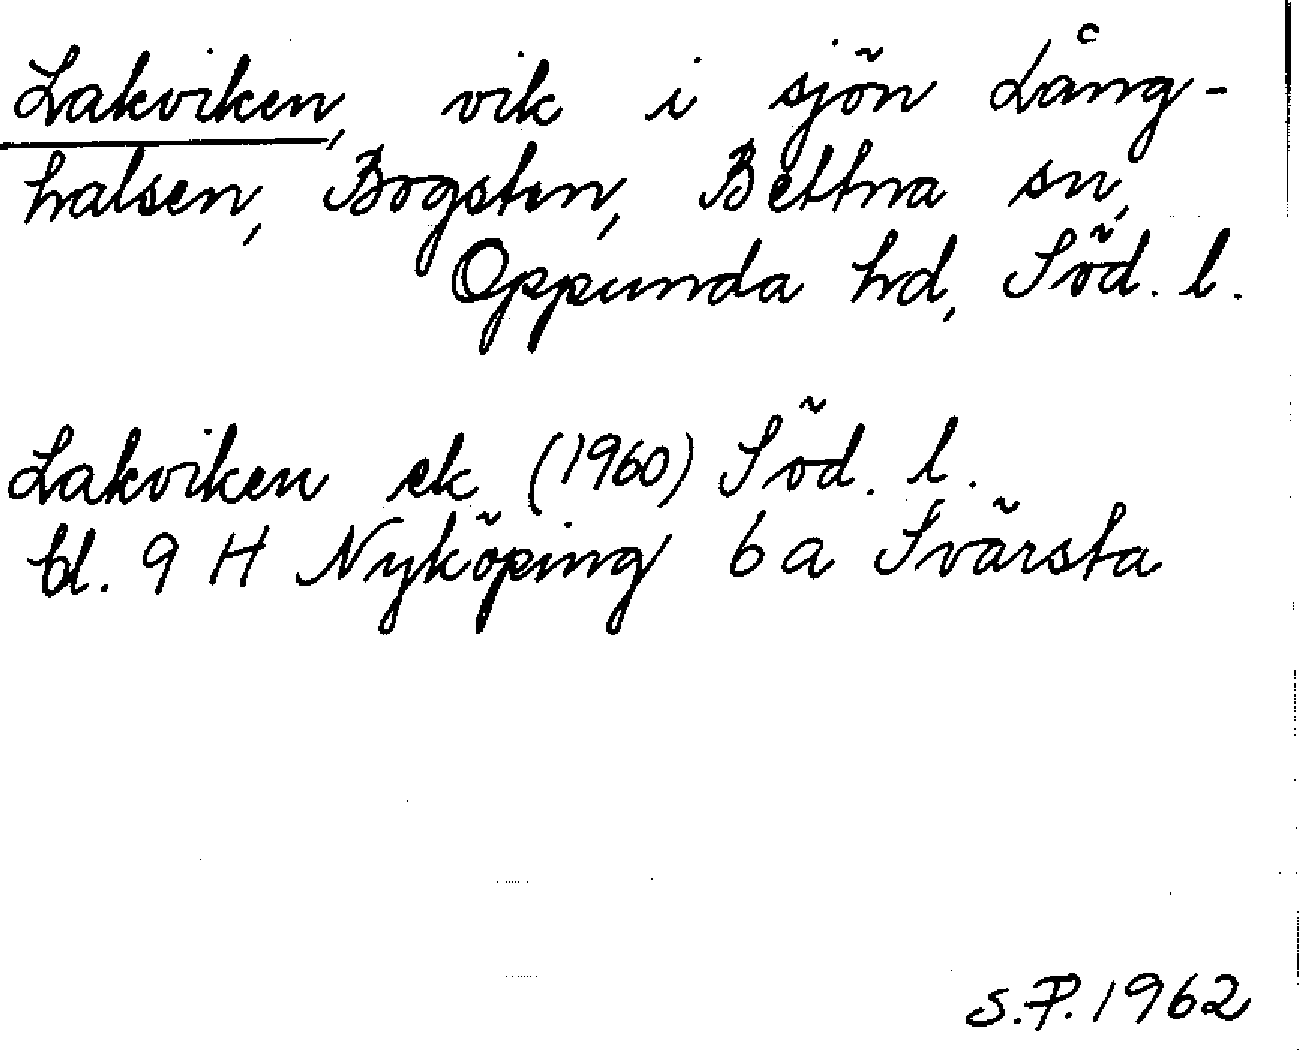 Lakviken, vik i sjön Lång-
halsen, Bogsten, Bettna sn,
Oppunda hd, Söd. l.
Lakviken ek (1960) Söd. l.
bl. 9 H Nyköping 6 a Svärsta
S.P. 1962